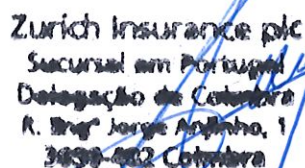 Zurich Insurance plc
Sucursal em Portugal
Delegação de Coimbra
R. Engº Jorge Anjinho, 1
Coimbra